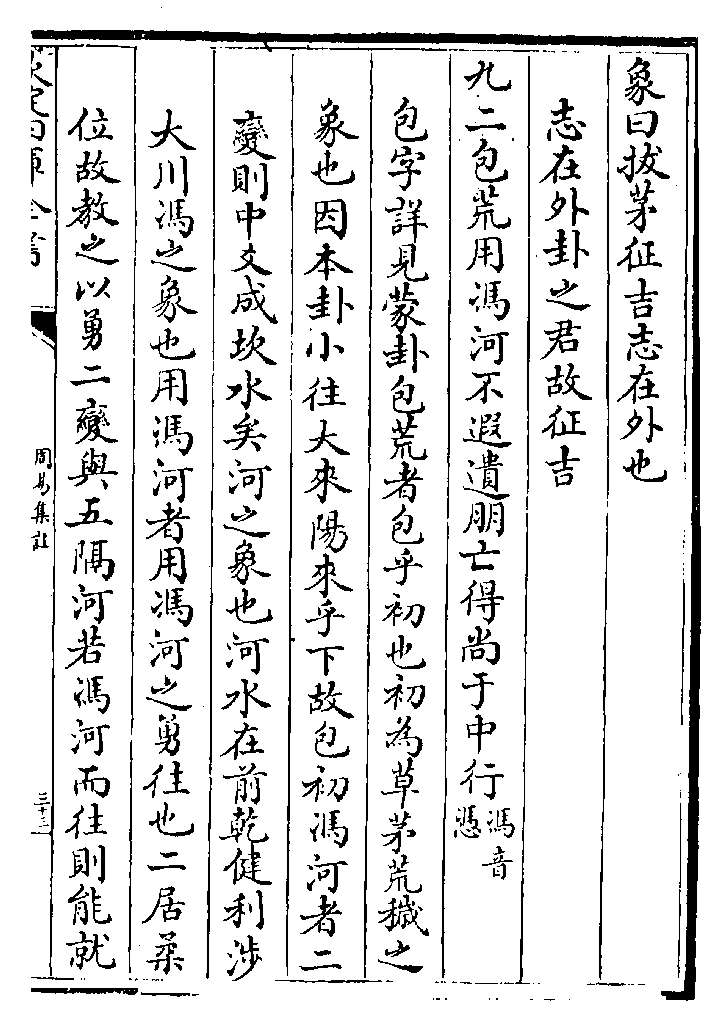 象曰拔茅征吉志在外也
志在外卦之君故征吉
九二包荒用馮河不遐遺朋亡得尚于中行馮音憑
包字詳見蒙卦包荒者包乎初也初為草茅荒穢之
象也因本卦小往大來陽來乎下故包初馮河者二
變則中爻成坎水矣河之象也河水在前乾健利涉
大川馮之象也用馮河者用馮河之勇往也二居柔
位故教之以勇二變與五隔河若馮河而往則能就
欽定四庫全書
周易集註
三十三